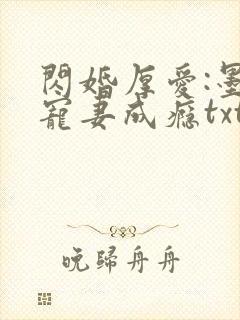 閃婚厚愛:墨
寵妻成癮txt
晚歸舟舟